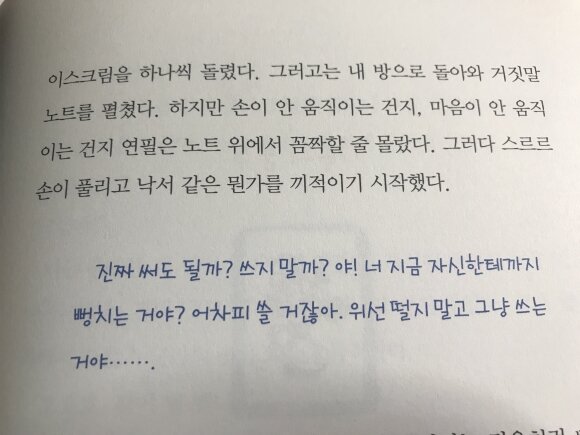 이스크림을 하나씩 돌렸다. 그러고는 내 방으로 돌아와 거짓말
노트를 펼쳤다. 하지만 손이 안 움직이는 건지, 마음이 안 움직
이는 건지 연필은 노트 위에서 꼼짝할 줄 몰랐다. 그러다 스르르
손이 풀리고 낙서 같은 뭔가를 끼적이기 시작했다.
진짜 써도 될까? 쓰지 말까? 야! 너 지금 자신한테까지
뻥치는 거야? 어차피 쓸 거잖아. 위선 떨지 말고 그냥 쓰는
거야…….